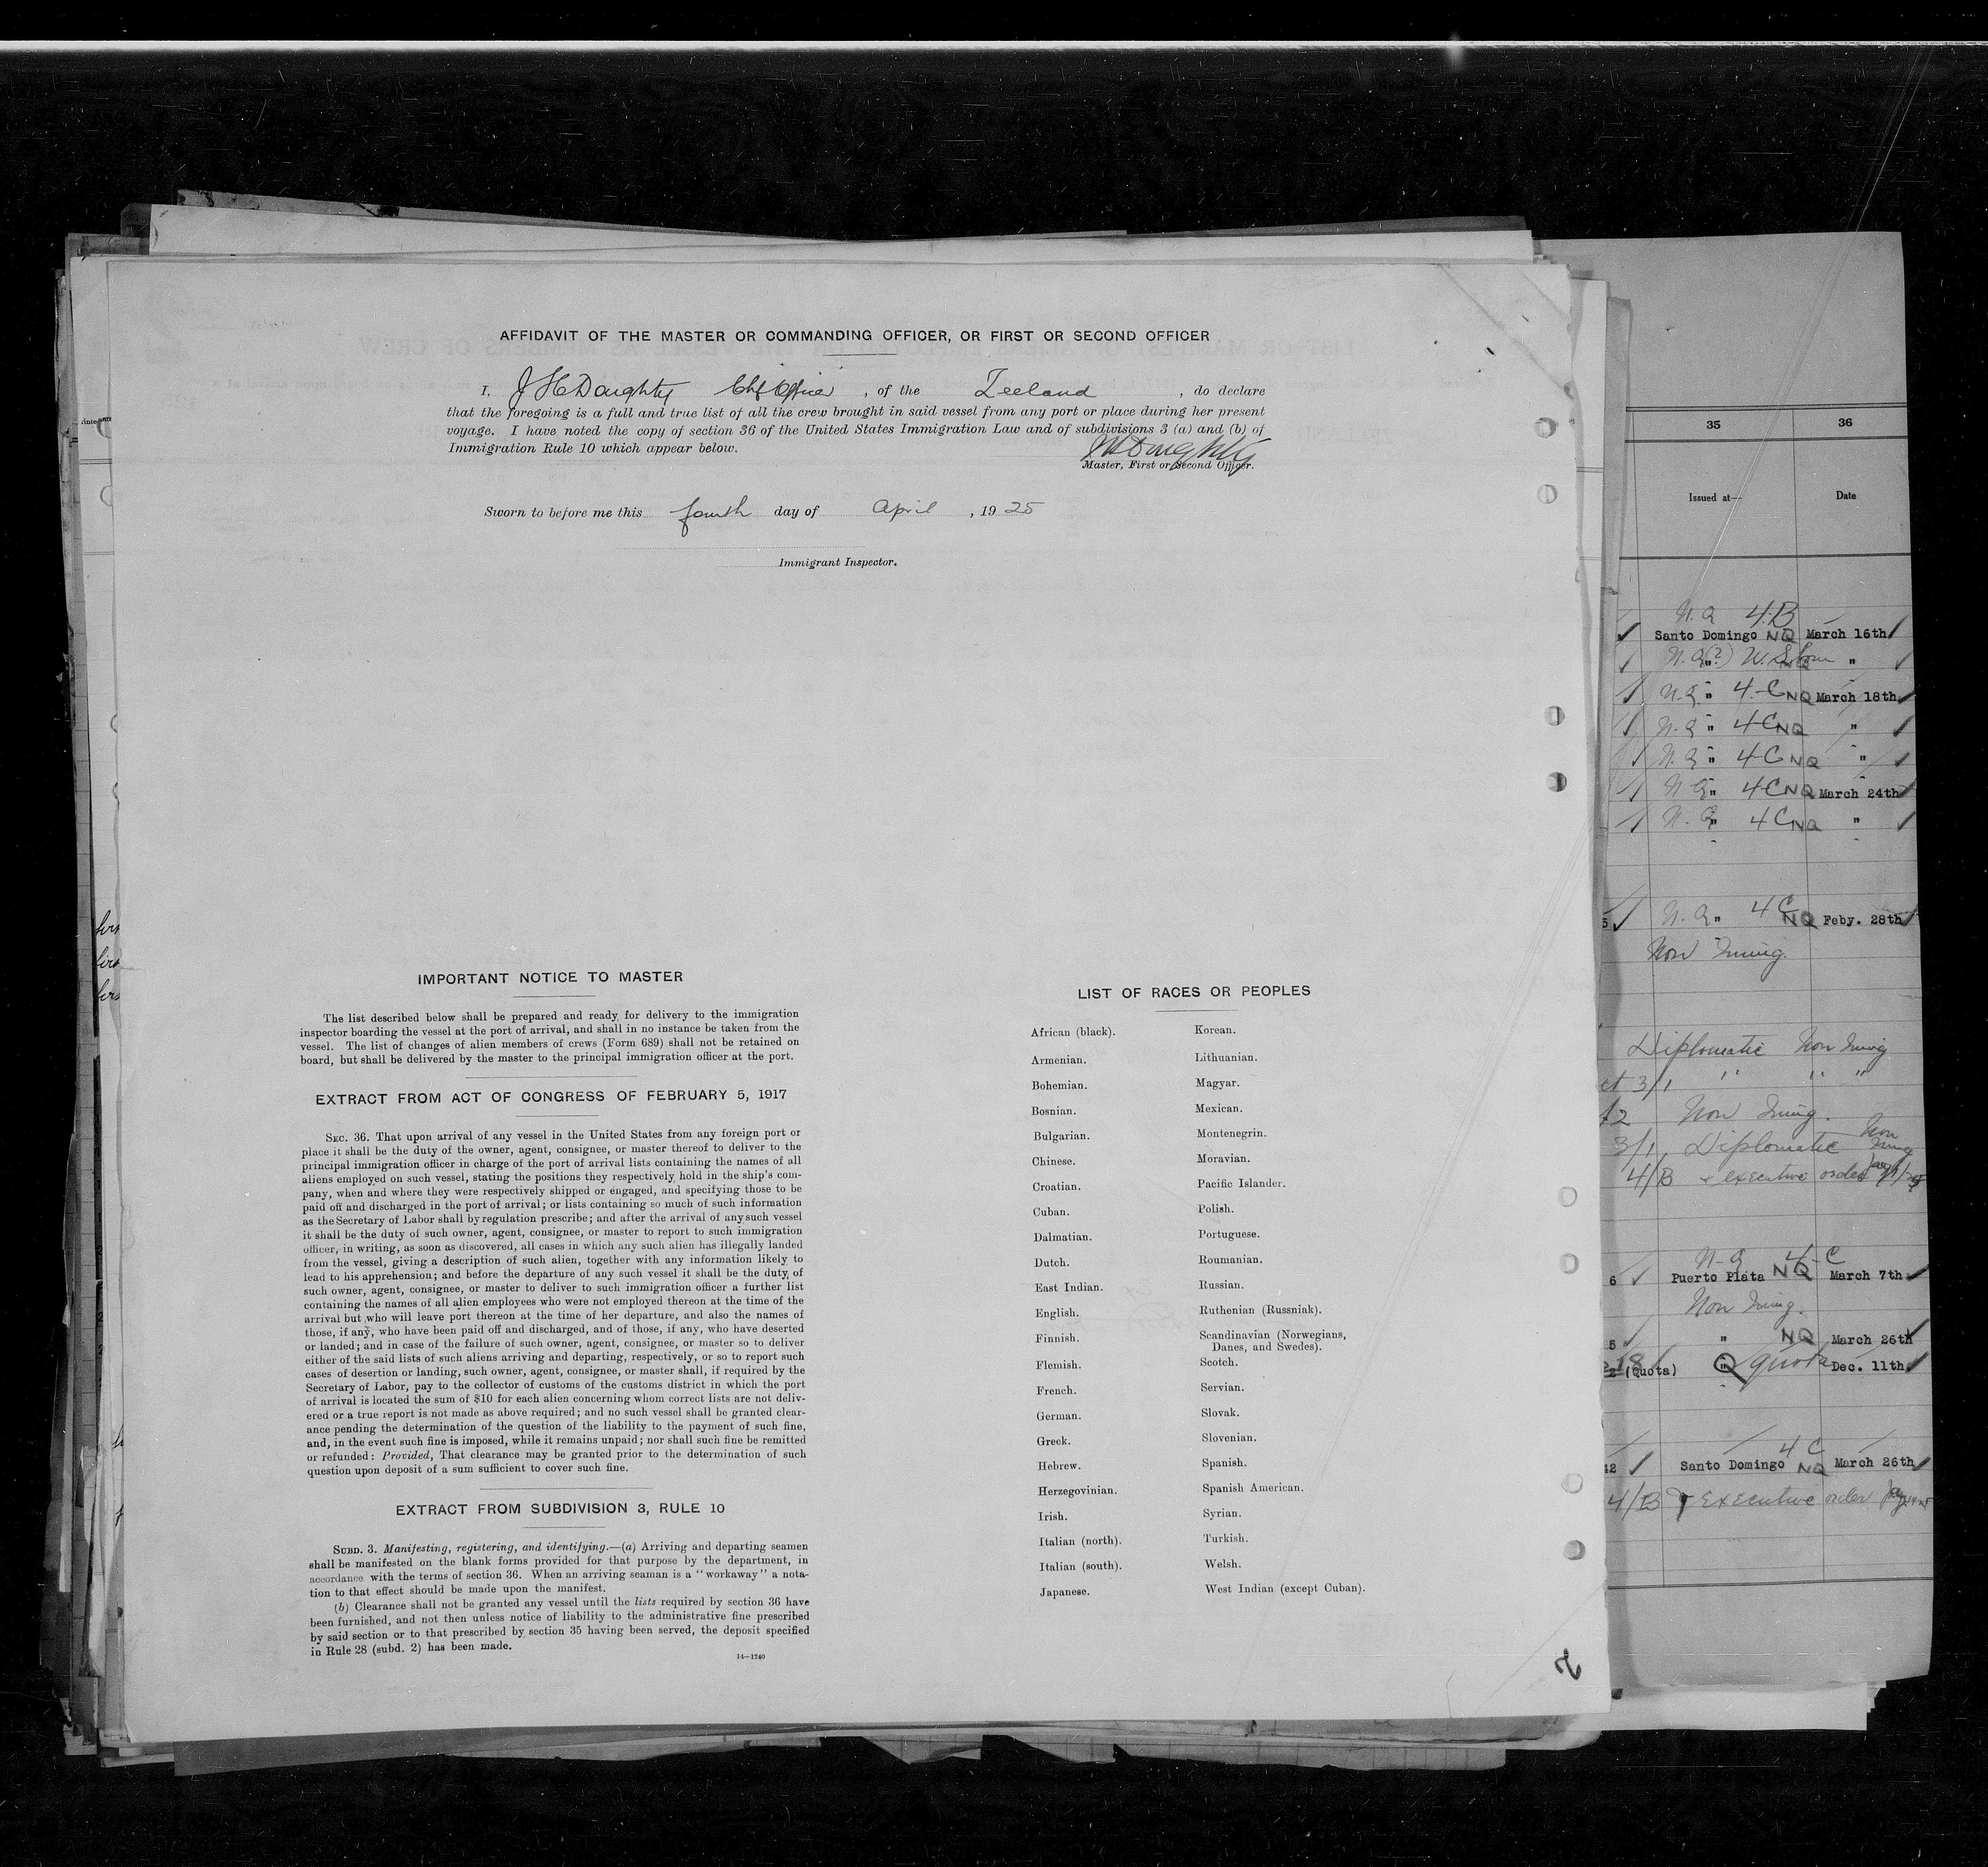 AFFIDAVIT OF THE MASTER OR COMMANDING OFFICER, OR FIRST OR SECOND OFFICER
I, J H Doughty Chf Officer, of the Zeeland, do declare
that the foregoing is a full and true list of all the crew brought in said vessel from any port or place during her present
voyage. I have noted the copy of section 36 of the United States Immigration Law and of subdivisions 3 (a) and (b) of
Immigration Rule 10 which appear below.
JH Doughty
Master, First or Second Officer.
Sworn to before me this fourth day of April, 1925
Immigrant Inspector.
IMPORTANT NOTICE TO MASTER
The list described below shall be prepared and ready for delivery to the immigration
inspector boarding the vessel at the port of arrival, and shall in no instance be taken from the
vessel. The list of changes of alien members of crews (Form 689) shall not be retained on
board, but shall be delivered by the master to the principal immigration officer at the port.
EXTRACT FROM ACT OF CONGRESS OF FEBRUARY 5, 1917
SEC. 36. That upon arrival of any vessel in the United States from any foreign port or
place it shall be the duty of the owner, agent, consignee, or master thereof to deliver to the
principal immigration officer in charge of the port of arrival lists containing the names of all
aliens employed on such vessel, stating the positions they respectively hold in the ship's com-
pany, when and where they were respectively shipped or engaged, and specifying those to be
paid off and discharged in the port of arrival; or lists containing so much of such information
as the Secretary of Labor shall by regulation prescribe; and after the arrival of any such vessel
it shall be the duty of such owner, agent, consignee, or master to report to such immigration
officer, in writing, as soon as discovered, all cases in which any such alien has illegally landed
from the vessel, giving a description of such alien, together with any information likely to
lead to his apprehension; and before the departure of any such vessel it shall be the duty of
such owner, agent, consignee, or master to deliver to such immigration officer a further list
containing the names of all alien employees who were not employed thereon at the time of the
arrival but who will leave port thereon at the time of her departure, and also the names of
those, if any, who have been paid off and discharged, and of those, if any, who have deserted
or landed; and in case of the failure of such owner, agent, consignee, or master so to deliver
either of the said lists of such aliens arriving and departing, respectively, or so to report such
cases of desertion or landing, such owner, agent, consignee, or master shall, if required by the
Secretary of Labor, pay to the collector of customs of the customs district in which the port
of arrival is located the sum of $10 for each alien concerning whom correct lists are not deliv-
ered or a true report is not made as above required; and no such vessel shall be granted clear-
ance pending the determination of the question of the liability to the payment of such fine,
and, in the event such fine is imposed, while it remains unpaid; nor shall such fine be remitted
or refunded: Provided, That clearance may be granted prior to the determination of such
question upon deposit of a sum sufficient to cover such fine.
EXTRACT FROM SUBDIVISION 3, RULE 10
SUBD. 3. Manifesting, registering, and identifying.—(a) Arriving and departing seamen
shall be manifested on the blank forms provided for that purpose by the department, in
accordance with the terms of section 36. When an arriving seaman is a "workaway" a nota-
tion to that effect should be made upon the manifest.
(b) Clearance shall not be granted any vessel until the lists required by section 36 have
been furnished, and not then unless notice of liability to the administrative fine prescribed
by said section or to that prescribed by section 35 having been served, the deposit specified
in Rule 28 (subd. 2) has been made.
14—1240
LIST OF RACES OR PEOPLES
African (black).
Armenian.
Bohemian.
Bosnian.
Bulgarian.
Chinese.
Croatian.
Cuban.
Dalmatian.
Dutch.
East Indian.
English.
Finnish.
Flemish.
French.
German.
Greek.
Hebrew.
Herzegovinian.
Irish.
Italian (north).
Italian (south).
Japanese.
Korean.
Lithuanian.
Magyar.
Mexican.
Montenegrin.
Moravian.
Pacific Islander.
Polish.
Portuguese.
Roumanian.
Russian.
Ruthenian (Russniak).
Scandinavian (Norwegians,
Danes, and Swedes).
Scotch.
Servian.
Slovak.
Slovenian.
Spanish.
Spanish American.
Syrian.
Turkish.
Welsh.
West Indian (except Cuban).
35 36
Issued at— Date
N.Q 4.B
Santo Domingo NQ March 16th
N.Q " (?) "
N.Q " 4-C NQ March 18th
N.Q " 4C NQ "
N.Q " 4C NQ "
N Q " 4C NQ March 24th
N.Q " 4C NQ "
5 N.Q " 4C NQ Feby. 28th
Non Immig.
Diplomatic Non Immig
3/1 " " "
Non Immig.
3/1 Diplomatic Non Immig
4/B executive order
N-Q 4-C
6 Puerto Plata NQ March 7th
Non Immig.
5 " NQ March 26th
(Quota) Q " quota Dec. 11th
4 C
42 Santo Domingo NQ March 26th
4/B executive order